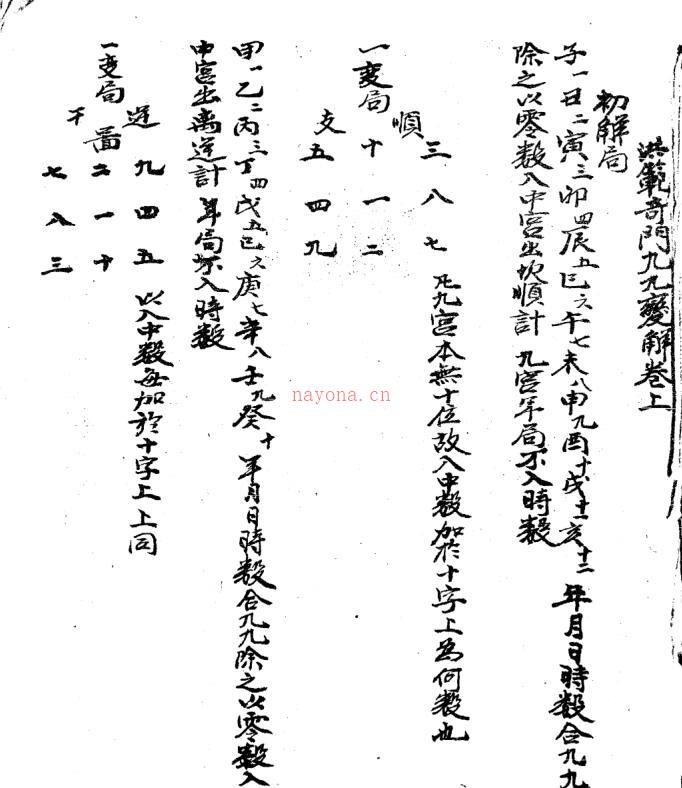 洪範奇門九九變解卷上
初解局
子一丑二寅三卯四辰五巳六午七未八申九酉十戌十一亥十二 年月日時数合九九
除之以零数入中宮出坎順計 九宮年局不入時数
一变局 順 支
三 八 七
十 一 二
五 四 九
凡九宮本無十位故入中数加於十字上為何数也
甲一乙二丙三丁四戊五己六庚七辛八壬九癸十 年月日時数合九九除之以零数入
中宮出离逆計 年局不入時数
一变局 逆 圖 干
九 四 五
六 一 十
七 八 三
以入中数每加於十字上 上同
nayona.cn